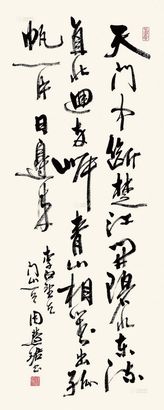 天门中断楚江开碧水东流
直北迴两岸青山相对出孤
帆一片日边来
李白望天
门山一首 周慧珺书